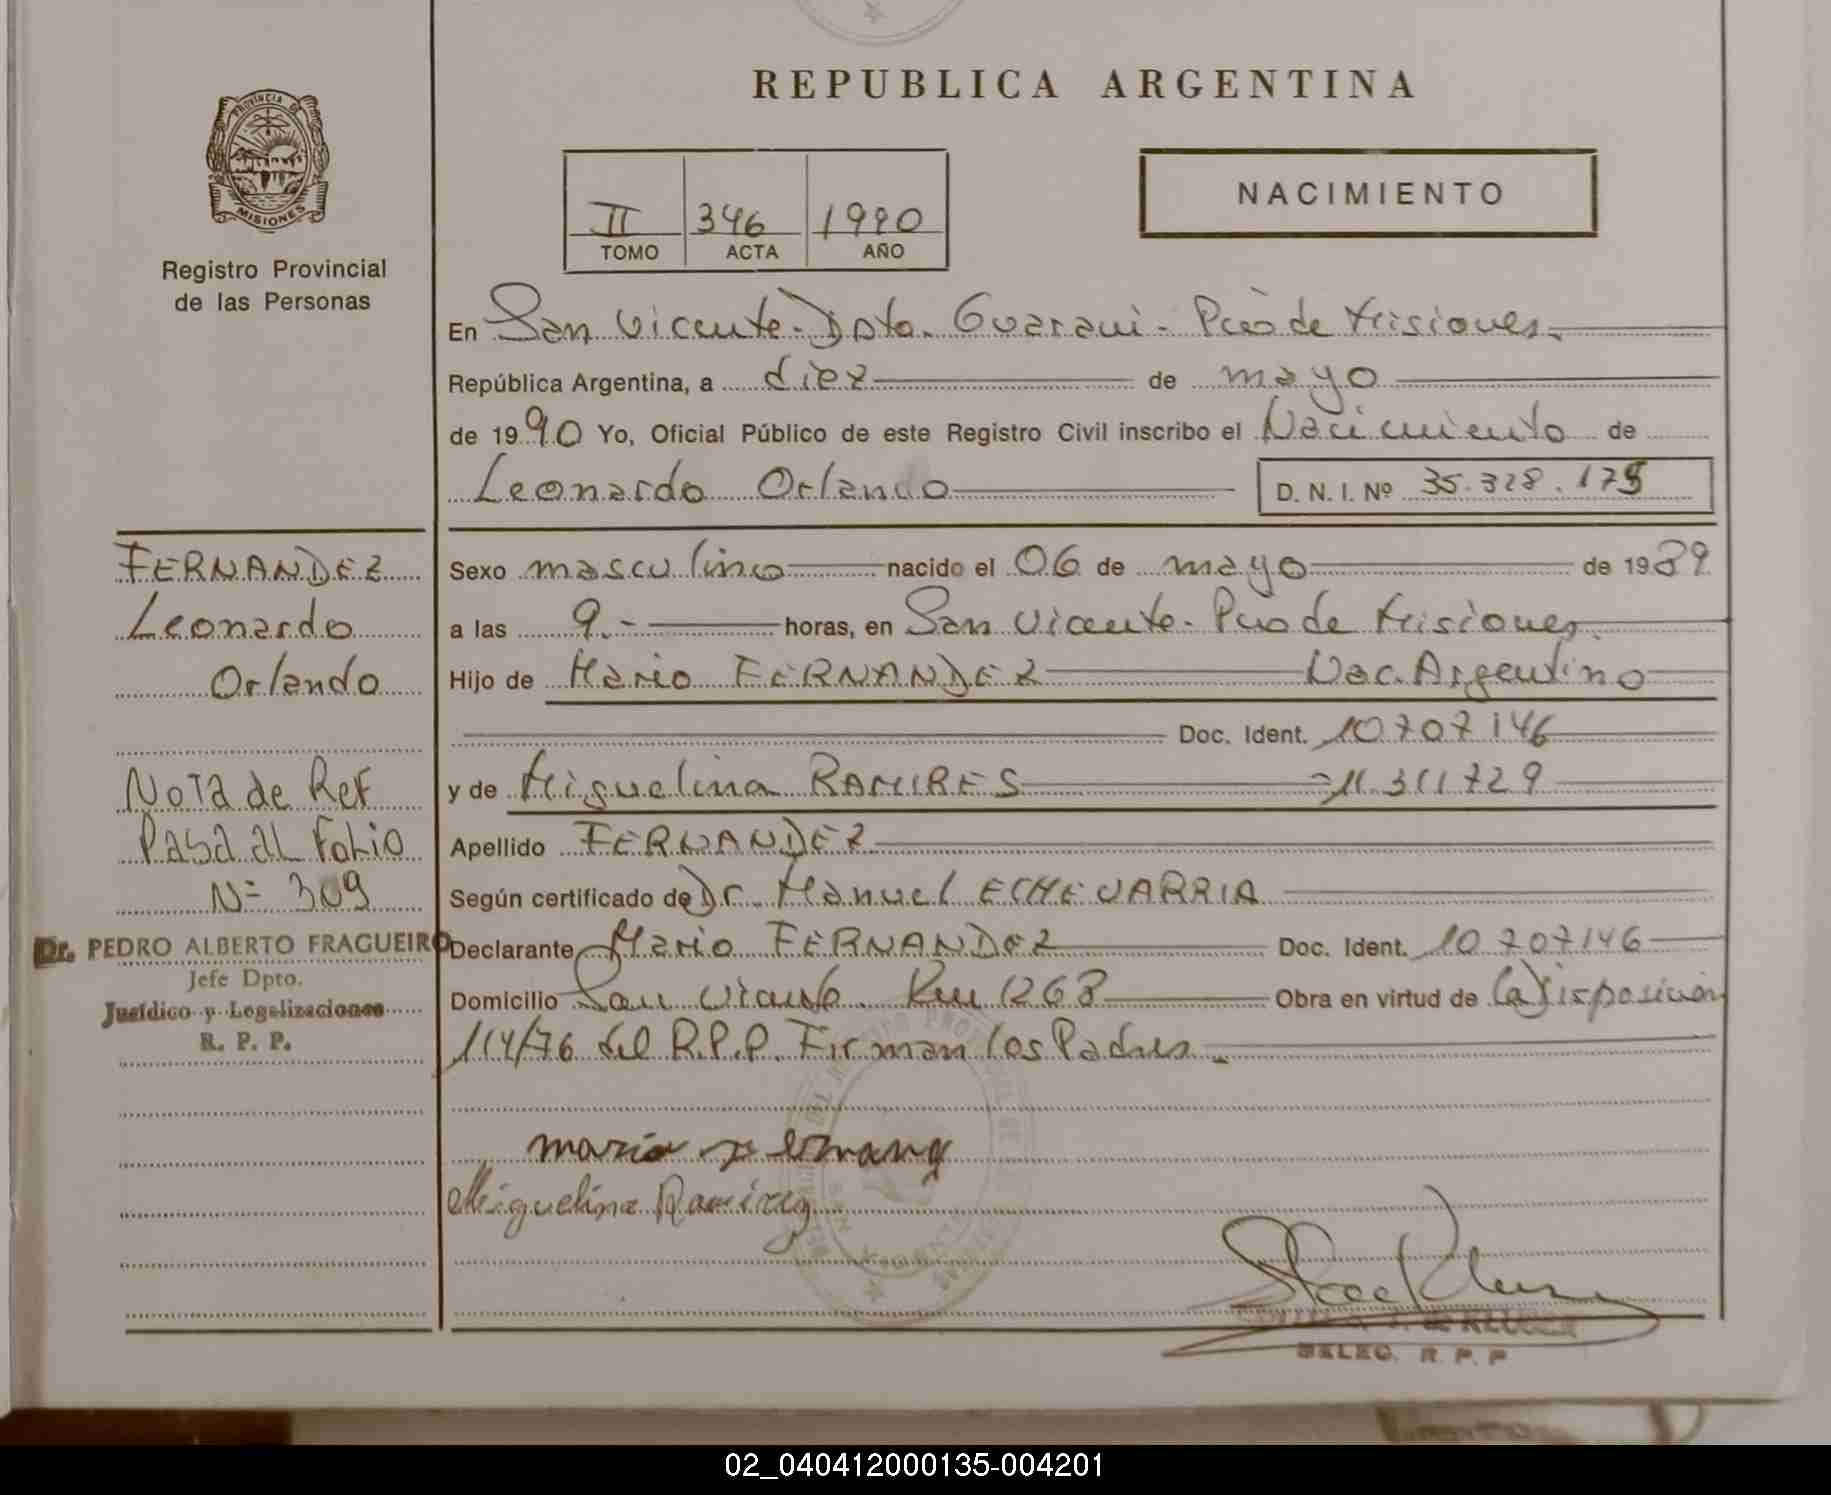 REPUBLICA ARGENTINA
PROVINCIA DE
MISIONES
Registro Provincial
de las Personas
II 346 1990
TOMO ACTA AÑO
NACIMIENTO
En San Vicente - Dpto. Guarani - Pcia de Misiones.
República Argentina, a diez de mayo
de 1990 Yo, Oficial Público de este Registro Civil inscribo el Nacimiento de
Leonardo Orlando D. N. I. Nº 35.328.175
FERNANDEZ
Leonardo
Orlando
Nota de Ref
Pasa al Folio
N= 309
Dr. PEDRO ALBERTO FRAGUEIRO
Jefe Dpto.
Jurídico y Legalizaciones
R. P. P.
Sexo masculino nacido el 06 de mayo de 1989
a las 9.- horas, en San Vicente - Pcia de Misiones.
Hijo de Mario FERNANDEZ Nac. Argentino
Doc. Ident. 10707146
y de Miguelina RAMIRES 11.311729
Apellido FERNANDEZ
Según certificado de Dr. Manuel ECHEVARRIA
Declarante Mario FERNANDEZ Doc. Ident. 10707146
Domicilio San Vicente. Km 1268 Obra en virtud de (a) Disposición
114/76 del R.P.P. Firman los Padres.
maria
Miguelina Ramirez
DELEG. R. P. P
02_040412000135-004201